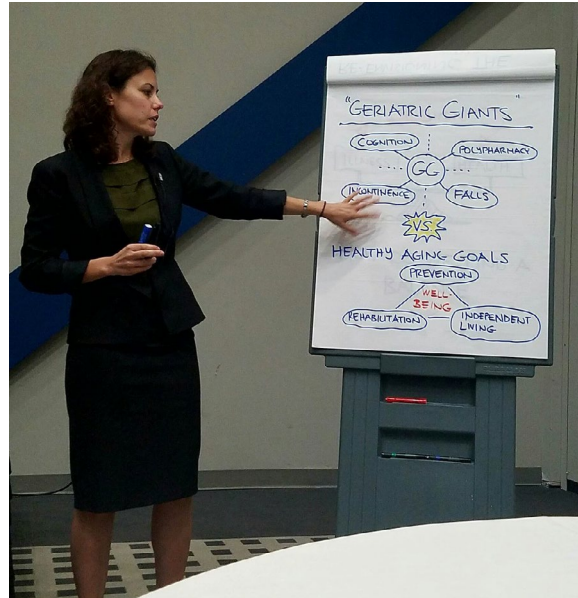 "GERIATRIC GIANTS"
COGNITION
POLYPHARMACY
GG
INCONTINENCE
FALLS
VS
HEALTHY AGING GOALS
PREVENTION
WELL-
BEING
REHABILITATION
INDEPENDENT
LIVING